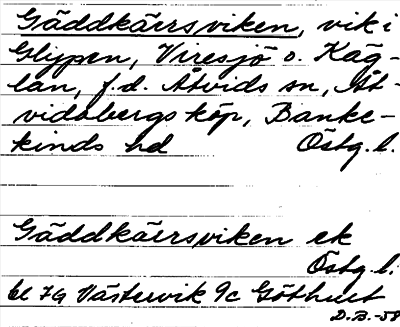 Gäddkärrsviken, vik i
Glypen, Viresjö o. Käg-
lan, f.d. Åtvids sn, Åt-
vidabergs köp, Banke-
kinds hd Östg. l.
Gäddkärrsviken ek
Östg. l.
bl 7G Västervik 9c Göthult
D.B.-58